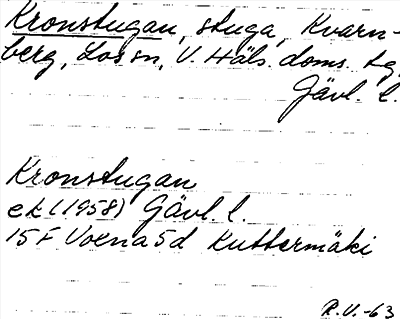 Kronstugan, stuga, Kvarn-
berg, Los sn, V. Häls. doms. tg,
Gävl. l.
Kronstugan
ek (1958) Gävl. l.
15 F Voxna 5d Kuttermäki
R.V.-63